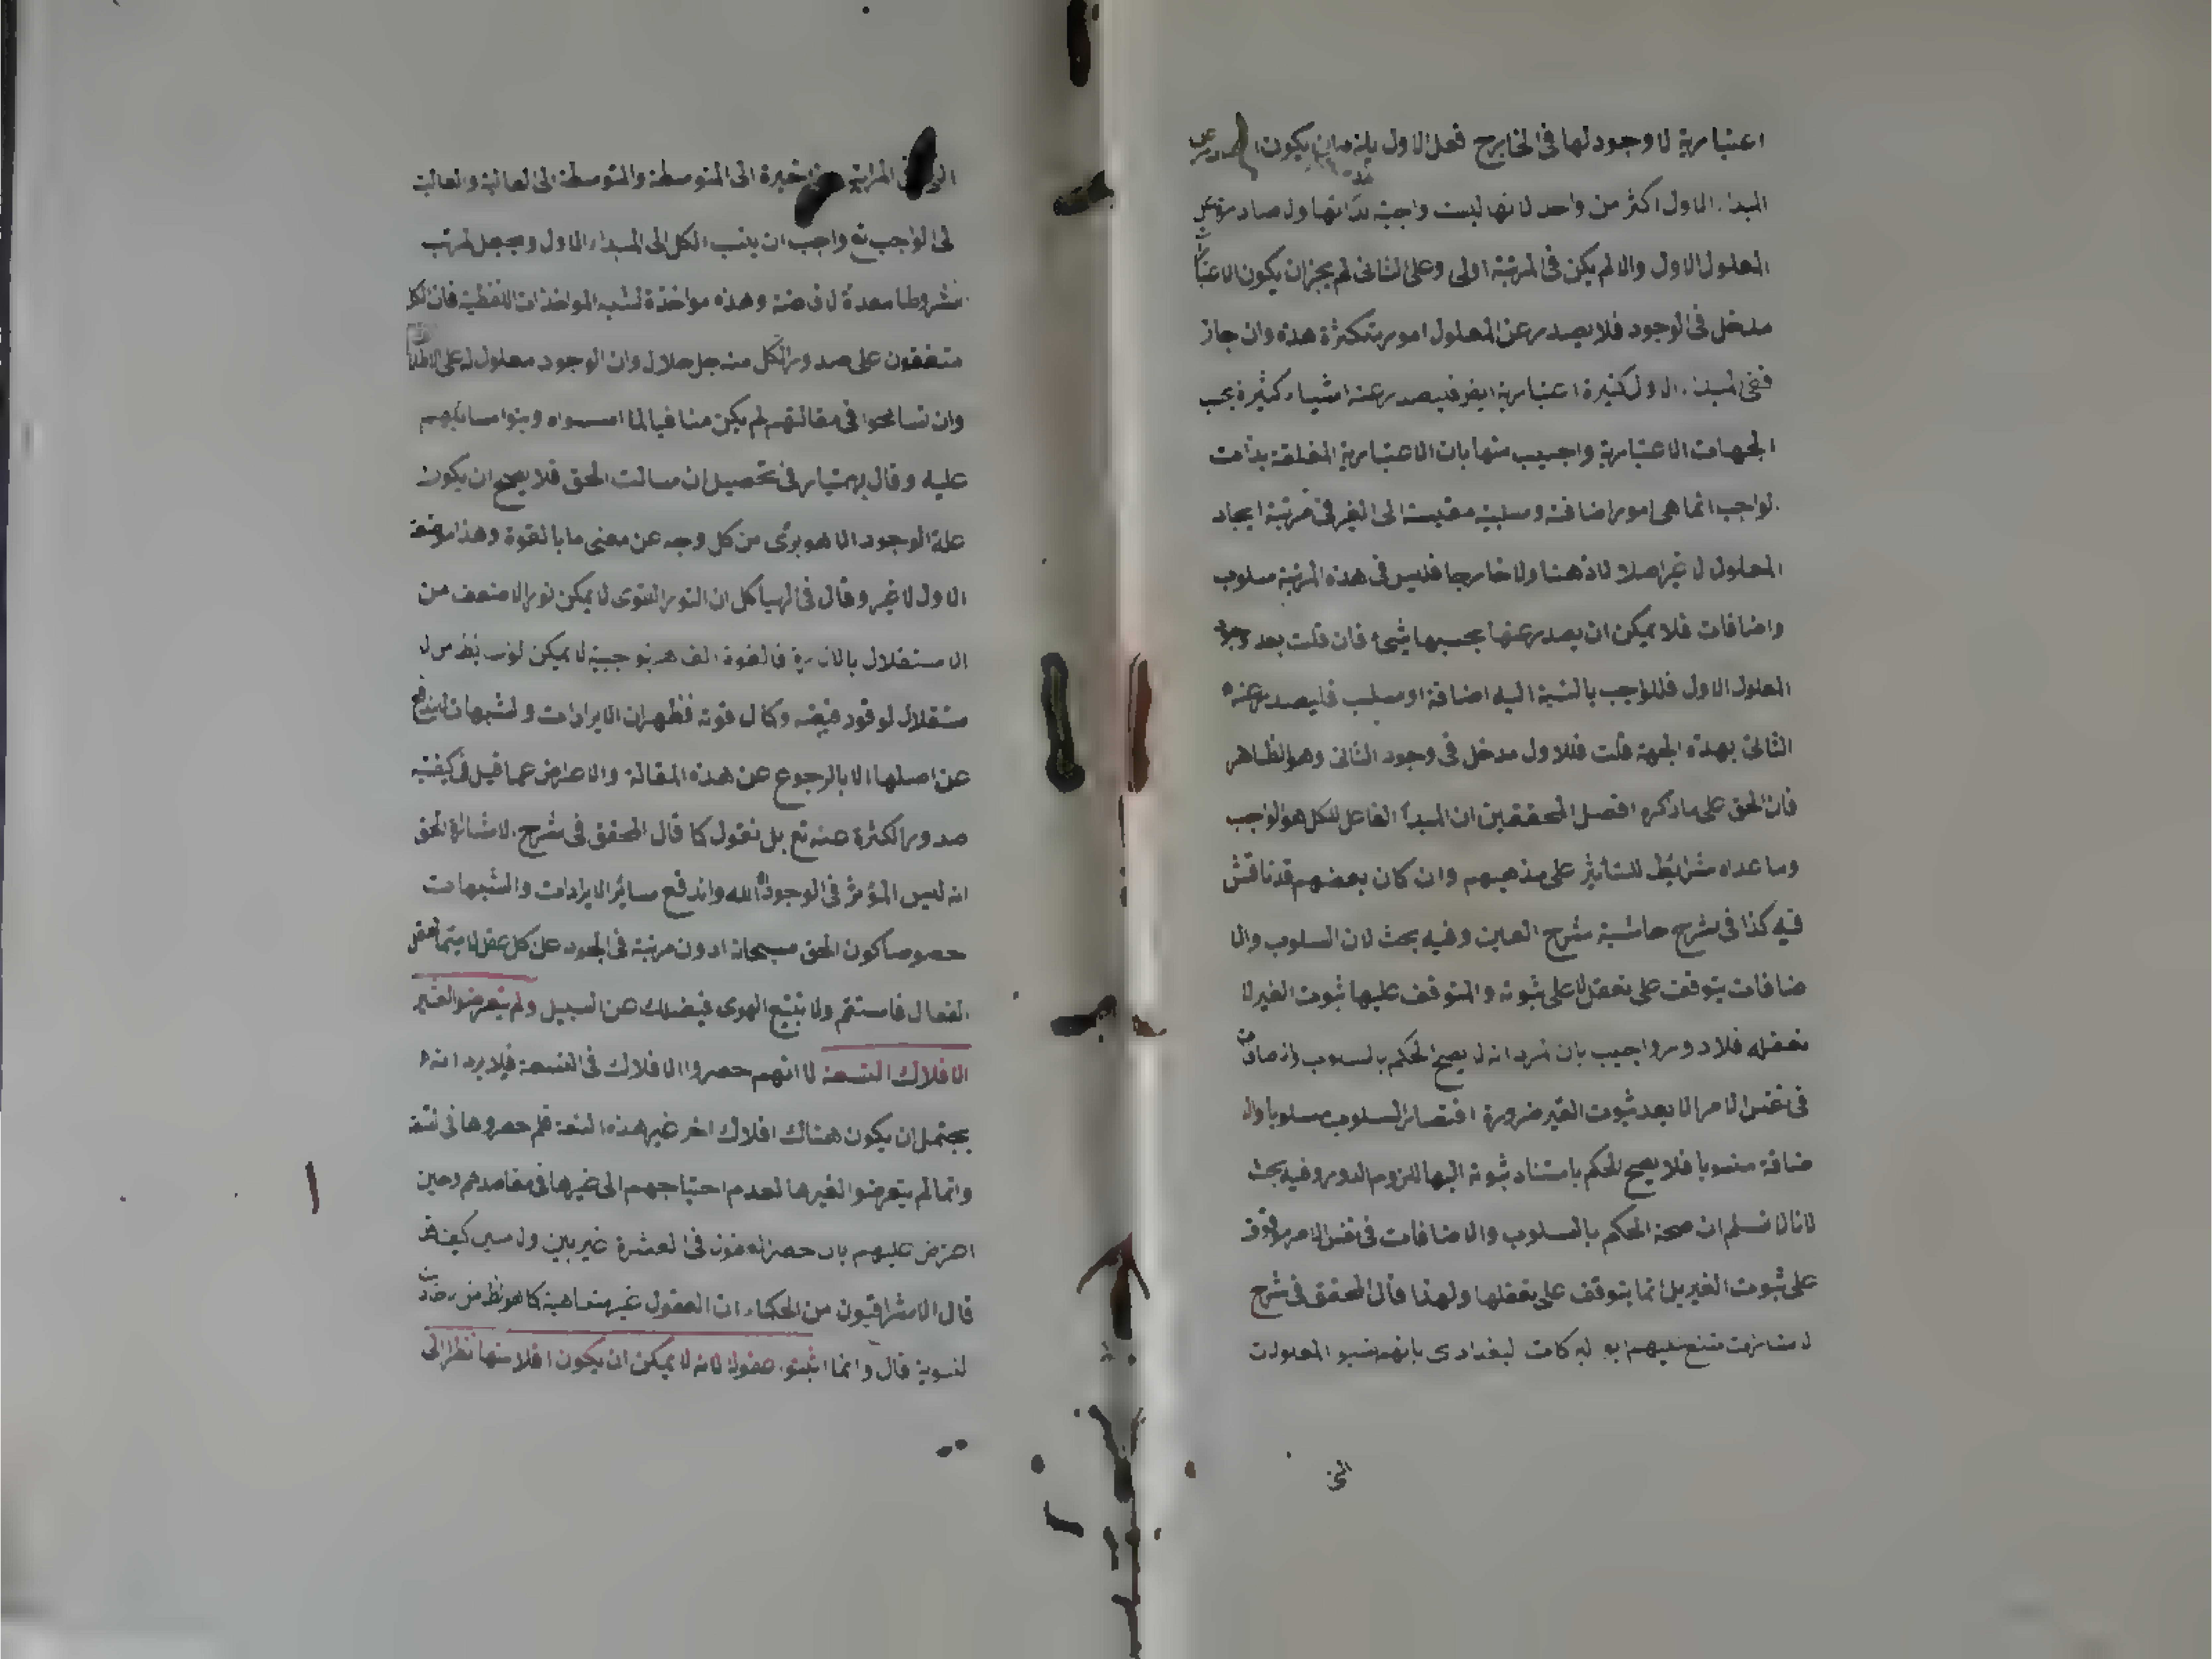 اعتبارية لا وجود لها في الخارج فعل الاول يلزم ان يكون الصادر عن
المبداء الاول اكثر من واحد لانها ليست واجبة بذاتها ولا صادرة عن
المعلول الاول والا لم يكن في المرتبة اولى وعلى الثاني لم يجز ان يكون الاعتبار
مدخل في الوجود فلا يصدر عن المعلول امور متكثرة هذه وان جاز
ففي المبداء الاول كثيرة اعتبارية ايض فيصدر عنه اشياء كثيرة بحسب
الجهات الاعتبارية واجيب منها بان الاعتبارية المتعلقة بذات
الواجب انما هي امور اضافية وسلبية مقيسة الى الغير في مرتبة ايجاد
المعلول لا غير اصلا لا ذهنا ولا خارجا فليس في هذه المرتبة سلوب
واضافات فلا يمكن ان يصدر عنها بحسبها شيء فان قلت بعد وجود
المعلول الاول فللواجب بالنسبة اليه اضافة او سلب فليصدر عنه
الثاني بهذه الجهة قلت فللاول مدخل في وجود الثاني وهو الظاهر
فان الحق على ما ذكره افضل المحققين ان المبدأ الفاعل للكل هو الواجب
وما عداه شرائط للتأثير على مذهبهم وان كان بعضهم قد ناقش
فيه كذا في شرح حاشية شرح العين وفيه بحث لان السلوب والا
ضافات يتوقف على تعقل لا على ثبوته والمتوقف عليها ثبوت الغير لا
تعقله فلا دور واجيب بان المراد انه لا يصح الحكم بالسلوب والاضافات
في نفس الامر الا بعد ثبوت الغير ضرورة اقتضاء السلوب مسلوبا والا
ضافة منسوبا فلا يصح الحكم باستناد ثبوته اليها للزوم الدور وفيه بحث
لانا لا نسلم ان صحة الحكم بالسلوب والاضافات في نفس الامر موقوف
على ثبوت الغير بل انما يتوقف على تعقلها ولهذا قال المحقق في شرح
الاشارات شنع عليهم ابو البركات البغدادي بانهم نسبوا المعلولات
التي
التي في المراتب الاخيرة الى المتوسطة والمتوسطة الى العالية والعالية
الى الواجب تع واجب ان ينسب الكل الى المبداء الاول ويجعل المراتب
شروطا معدة لافاضته وهذه مواخذة تشبه المواخذات اللفظية فان الكل
متفقون على صدور الكل منه جل جلاله وان الوجود معلول له على الاطلاق
وان تساهلوا في مقالتهم لم يكن منافيا لما اسسوه وبنوا مسائلهم
عليه وقال بهمنيار في تحصيل ان سالت الحق فلا يصح ان يكون
علة الوجود الا هو برئ من كل وجه عن معنى ما بالقوة وهذا صفة
الاول لا غير وقال في الهياكل ان النور القوى لا يمكن نور الاضعف من
الاستقلال بالانارة فالقوة القاهرة الواجبية لا يمكن لوسائط من لا
ستقلال لوفور فيضه وكمال قوته فظهر ان الايرادات والشبهات لا يندفع
عن اصلها الا بالرجوع عن هذه المقالة والاعراض عما قيل في كيفية
صدور الكثرة عنه تع بل نقول كما قال المحقق في شرح الاشارة الحق
انه ليس المؤثر في الوجود الا الله واندفع سائر الايرادات والشبهات
خصوصا كون الحق سبحانه ادون مرتبة في الجود عن كل عقل لا سيما العقل
الفعال فاستقم ولا تتبع الهوى فيضلك عن السبيل ولم يتعرضوا لغير
الافلاك التسعة لا انهم حصروا الافلاك في التسعة فلا يرد انه
يحتمل ان يكون هناك افلاك اخر غير هذه التسعة فلم حصروها في التسعة
وانما لم يتعرضوا لغيرها لعدم احتياجهم الى غيرها في مقاصدهم وحين
اعترض عليهم بان حصر العقول في العشرة غير بين ولا مبين كيف قد
قال الاشراقيون من الحكماء ان العقول غير متناهية كما هو
قال وانما اثبتوا عقولا لانه لا يمكن ان يكون اقلا منها نظرا الى